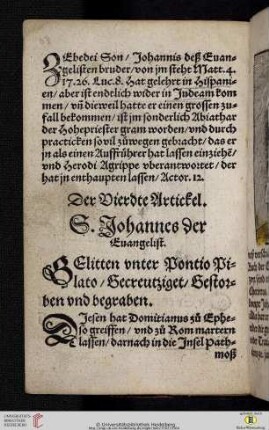 ZEbedei Son / Johannis deß Euan-
gelisten bruder / von jm steht Matt. 4.
17.26. Luc.8. Hat gelehrt in Hispani-
en / aber ist endtlich wider in Judeam kom
men / vñ dieweil hatte er einen grossen zu-
fall bekommen / ist jm sonderlich Abiathar
der Hohepriester gram worden / vnd durch
practicken so vil zůwegen gebracht / das er
jn als einen Auffrührer hat lassen einziehē /
vnd Herodi Agrippe vberantwortet / der
hat jn enthaupten lassen / Actor. 12.
Der Vierdte Artickel.
S. Johannes der
Euangelist.
GElitten vnter Pontio Pi-
lato / Gecreutziget / Gestor-
ben vnd begraben.
DIesen hat Domitianus zů Ephe-
so greiffen / vnd zů Rom martern
lassen / darnach in die Insel Path-
moß
© Universitätsbibliothek Heidelberg